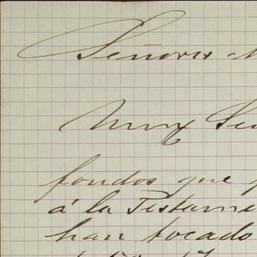 Señores
Muy
fondos que
á la Testame
han tocado